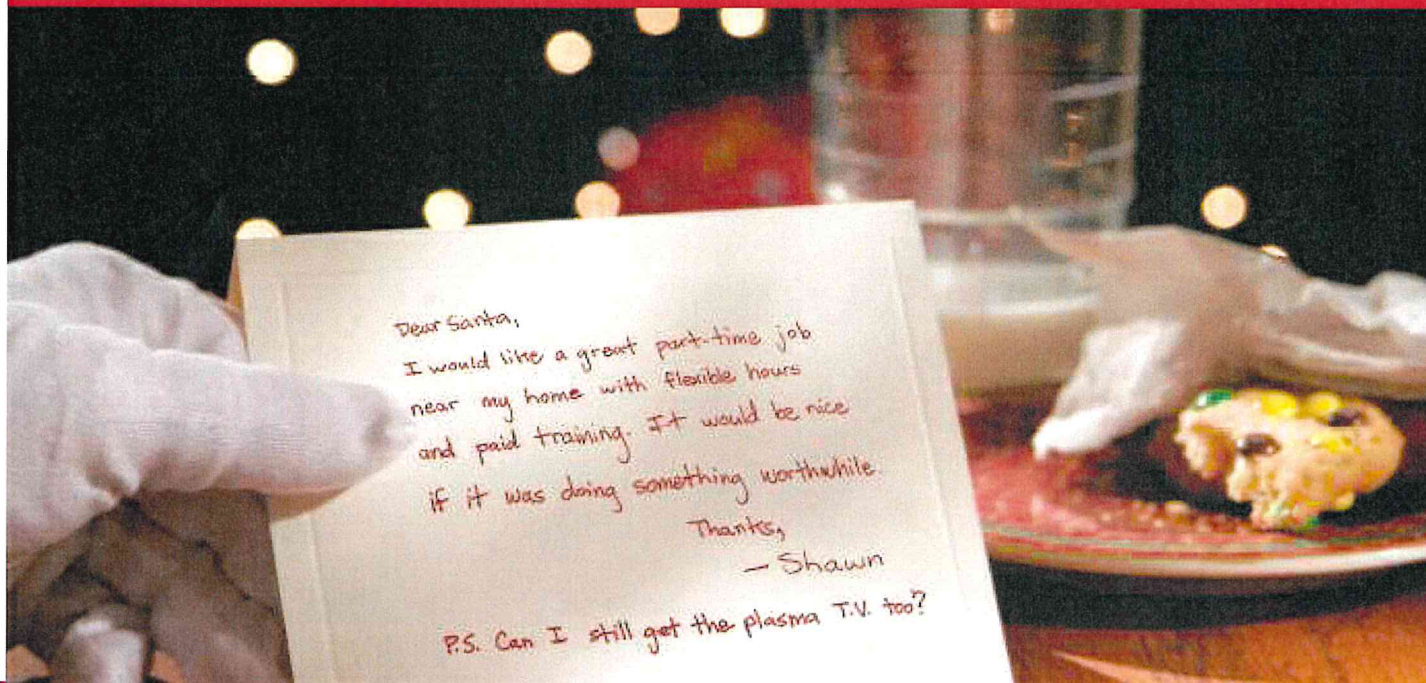 Dear Santa,
I would like a great part-time job
near my home with flexible hours
and paid training. It would be nice
if it was doing something worthwhile.
Thanks,
— Shawn
P.S. Can I still get the plasma T.V. too?